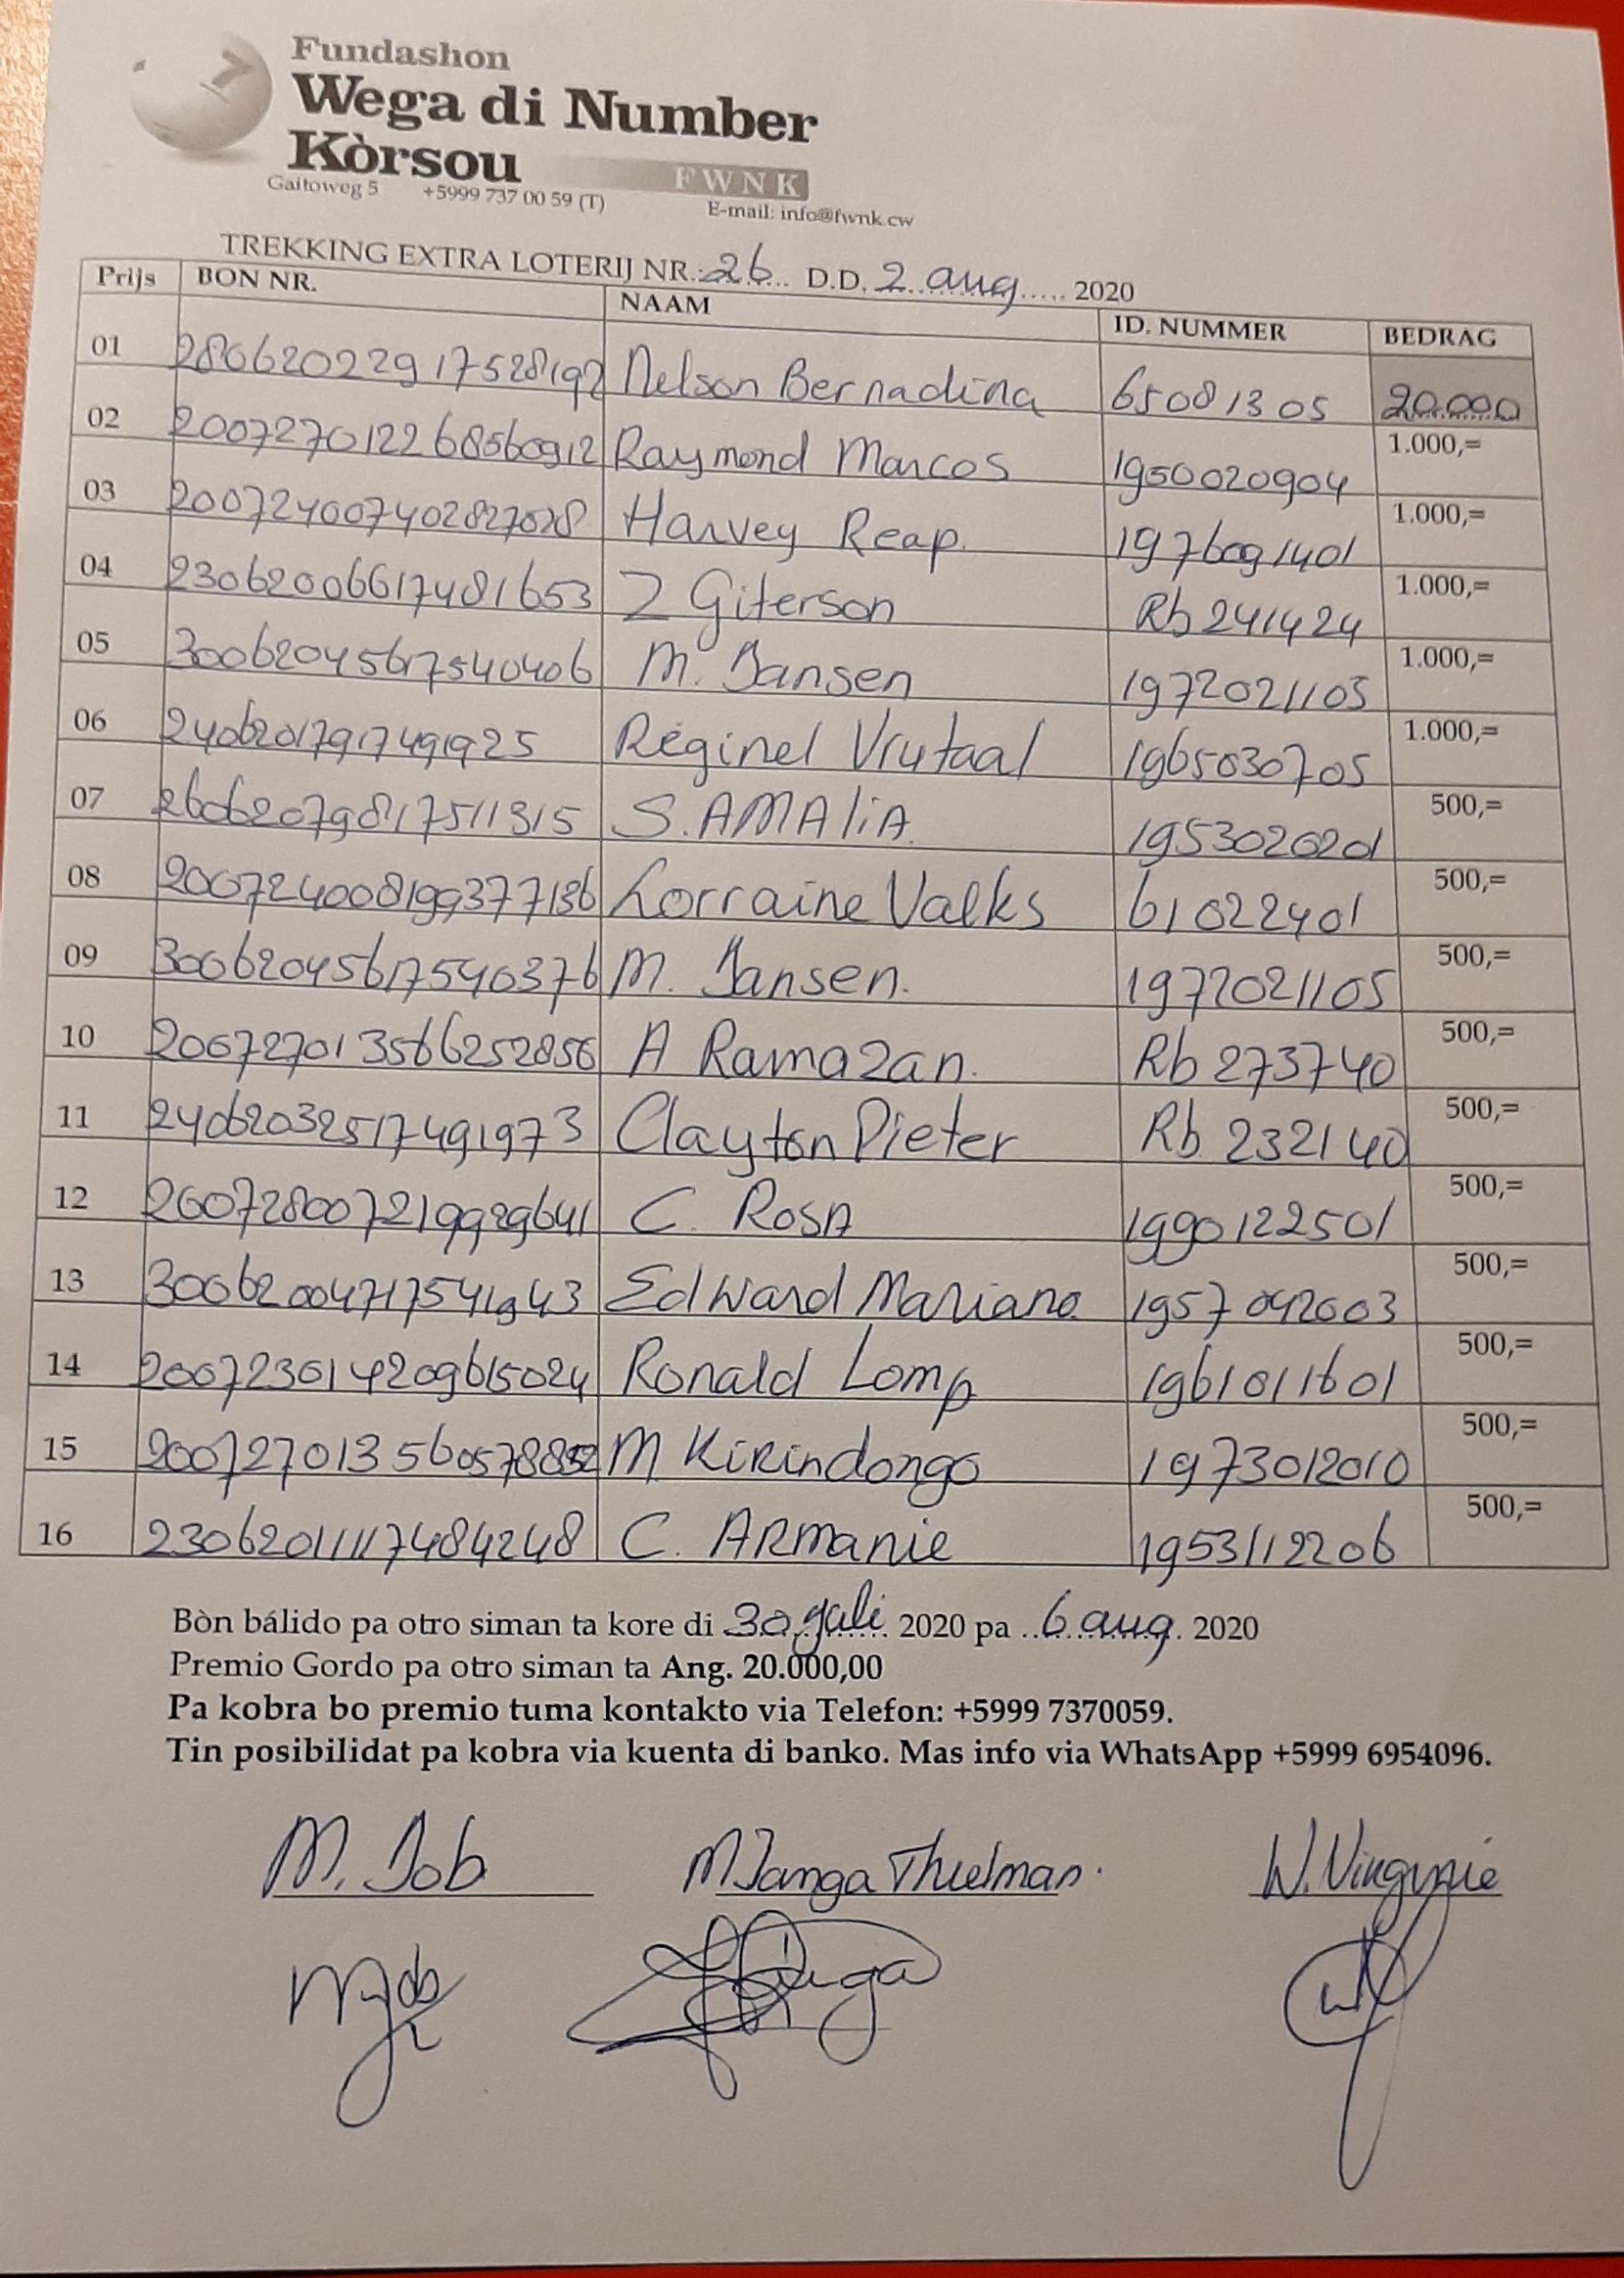 Fundashon
Wega di Number
Kòrsou
FWNK
Gaitoweg 5 +5999 737 00 59 (T) E-mail: info@fwnk.cw
TREKKING EXTRA LOTERIJ NR.: 26 D.D. 2 aug 2020
Prijs BON NR. NAAM ID. NUMMER BEDRAG
01 28062022917528192 Nelson Bernadina 65081305 20.000
02 200727012268560912 Raymond Marcos 1950020904 1.000,=
03 200724007402827028 Harvey Reap. 1976091401 1.000,=
04 23062006617481653 Z Giterson Rb 241424 1.000,=
05 30062045617540406 M. Jansen 1972021105 1.000,=
06 24062017917491925 Reginel Vrutaal 1965030705 1.000,=
07 26062079817511315 S. AMAliA. 1953020201 500,=
08 200724008199377136 Lorraine Valks 61022401 500,=
09 30062045617540376 M. Jansen. 1972021105 500,=
10 200727013566252856 A Ramazan. Rb 273740 500,=
11 24062032517491973 Clayton Pieter Rb 232140 500,=
12 200728007219929641 C. RosA 1990122501 500,=
13 30062004717541943 Edward Mariano 1957042003 500,=
14 200723014209615024 Ronald Lomp 1961011601 500,=
15 M Kirindongo 1973012010 500,=
16 23062011117484248 C. ARmanie 1953112206 500,=
Bòn bálido pa otro siman ta kore di 30 juli 2020 pa 6 aug. 2020
Premio Gordo pa otro siman ta Ang. 20.000,00
Pa kobra bo premio tuma kontakto via Telefon: +5999 7370059.
Tin posibilidat pa kobra via kuenta di banko. Mas info via WhatsApp +5999 6954096.
M. Job M Janga Thielman. W. Virginie